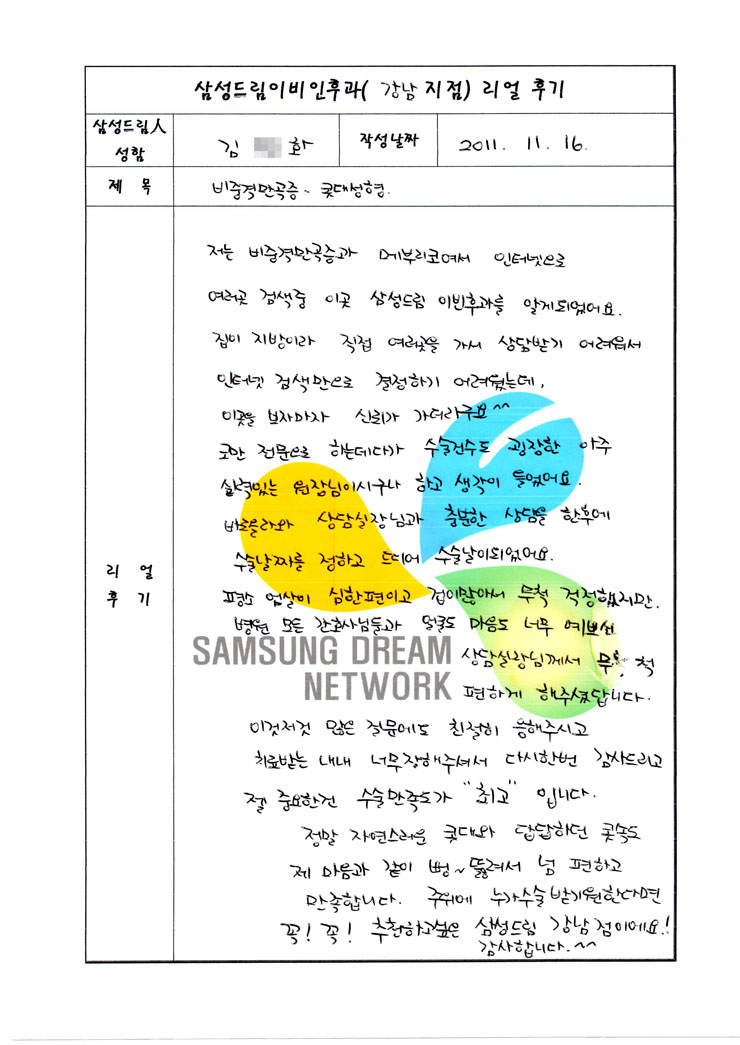 삼성드림이비인후과( 강남 지점) 리얼 후기
삼성드림人 성함
김 화
작성날짜
2011. 11. 16.
제 목
비중격만곡증 - 콧대성형.
리 얼 후 기
저는 비중격만곡증과 메부리코여서 인터넷으로
여러곳 검색중 이곳 삼성드림 이빈후과를 알게되었어요.
집이 지방이라 직접 여러곳을 가서 상담받기 어려워서
인터넷 검색만으로 결정하기 어려웠는데,
이곳을 보자마자 신뢰가 가더라구요^^
코만 전문으로 하는데다가 수술건수도 굉장한 아주
실력있는 원장님이시구나 하고 생각이 들었어요.
바로올라와 상담실장님과 충분한 상담을 한후에
수술날짜를 정하고 드디어 수술날이되었어요.
평소 엄살이 심한편이고 겁이많아서 무척 걱정했지만.
병원 모든 간호사님들과 얼굴도 마음도 너무 예쁘신
SAMSUNG DREAM
상담실장님께서 무척
NETWORK
편하게 해주셨답니다.
이것저것 많은 질문에도 친절히 응해주시고
치료받는 내내 너무잘해주셔서 다시한번 감사드리고
젤 중요한건 수술만족도가 "최고" 입니다.
정말 자연스러운 콧대와 답답하던 콧속도
제 마음과 같이 뻥~ 뚫려서 넘 편하고
만족합니다. 주위에 누가수술받기원한다면
꼭! 꼭! 추천하고싶은 삼성드림 강남점이에요!
감사합니다.^^